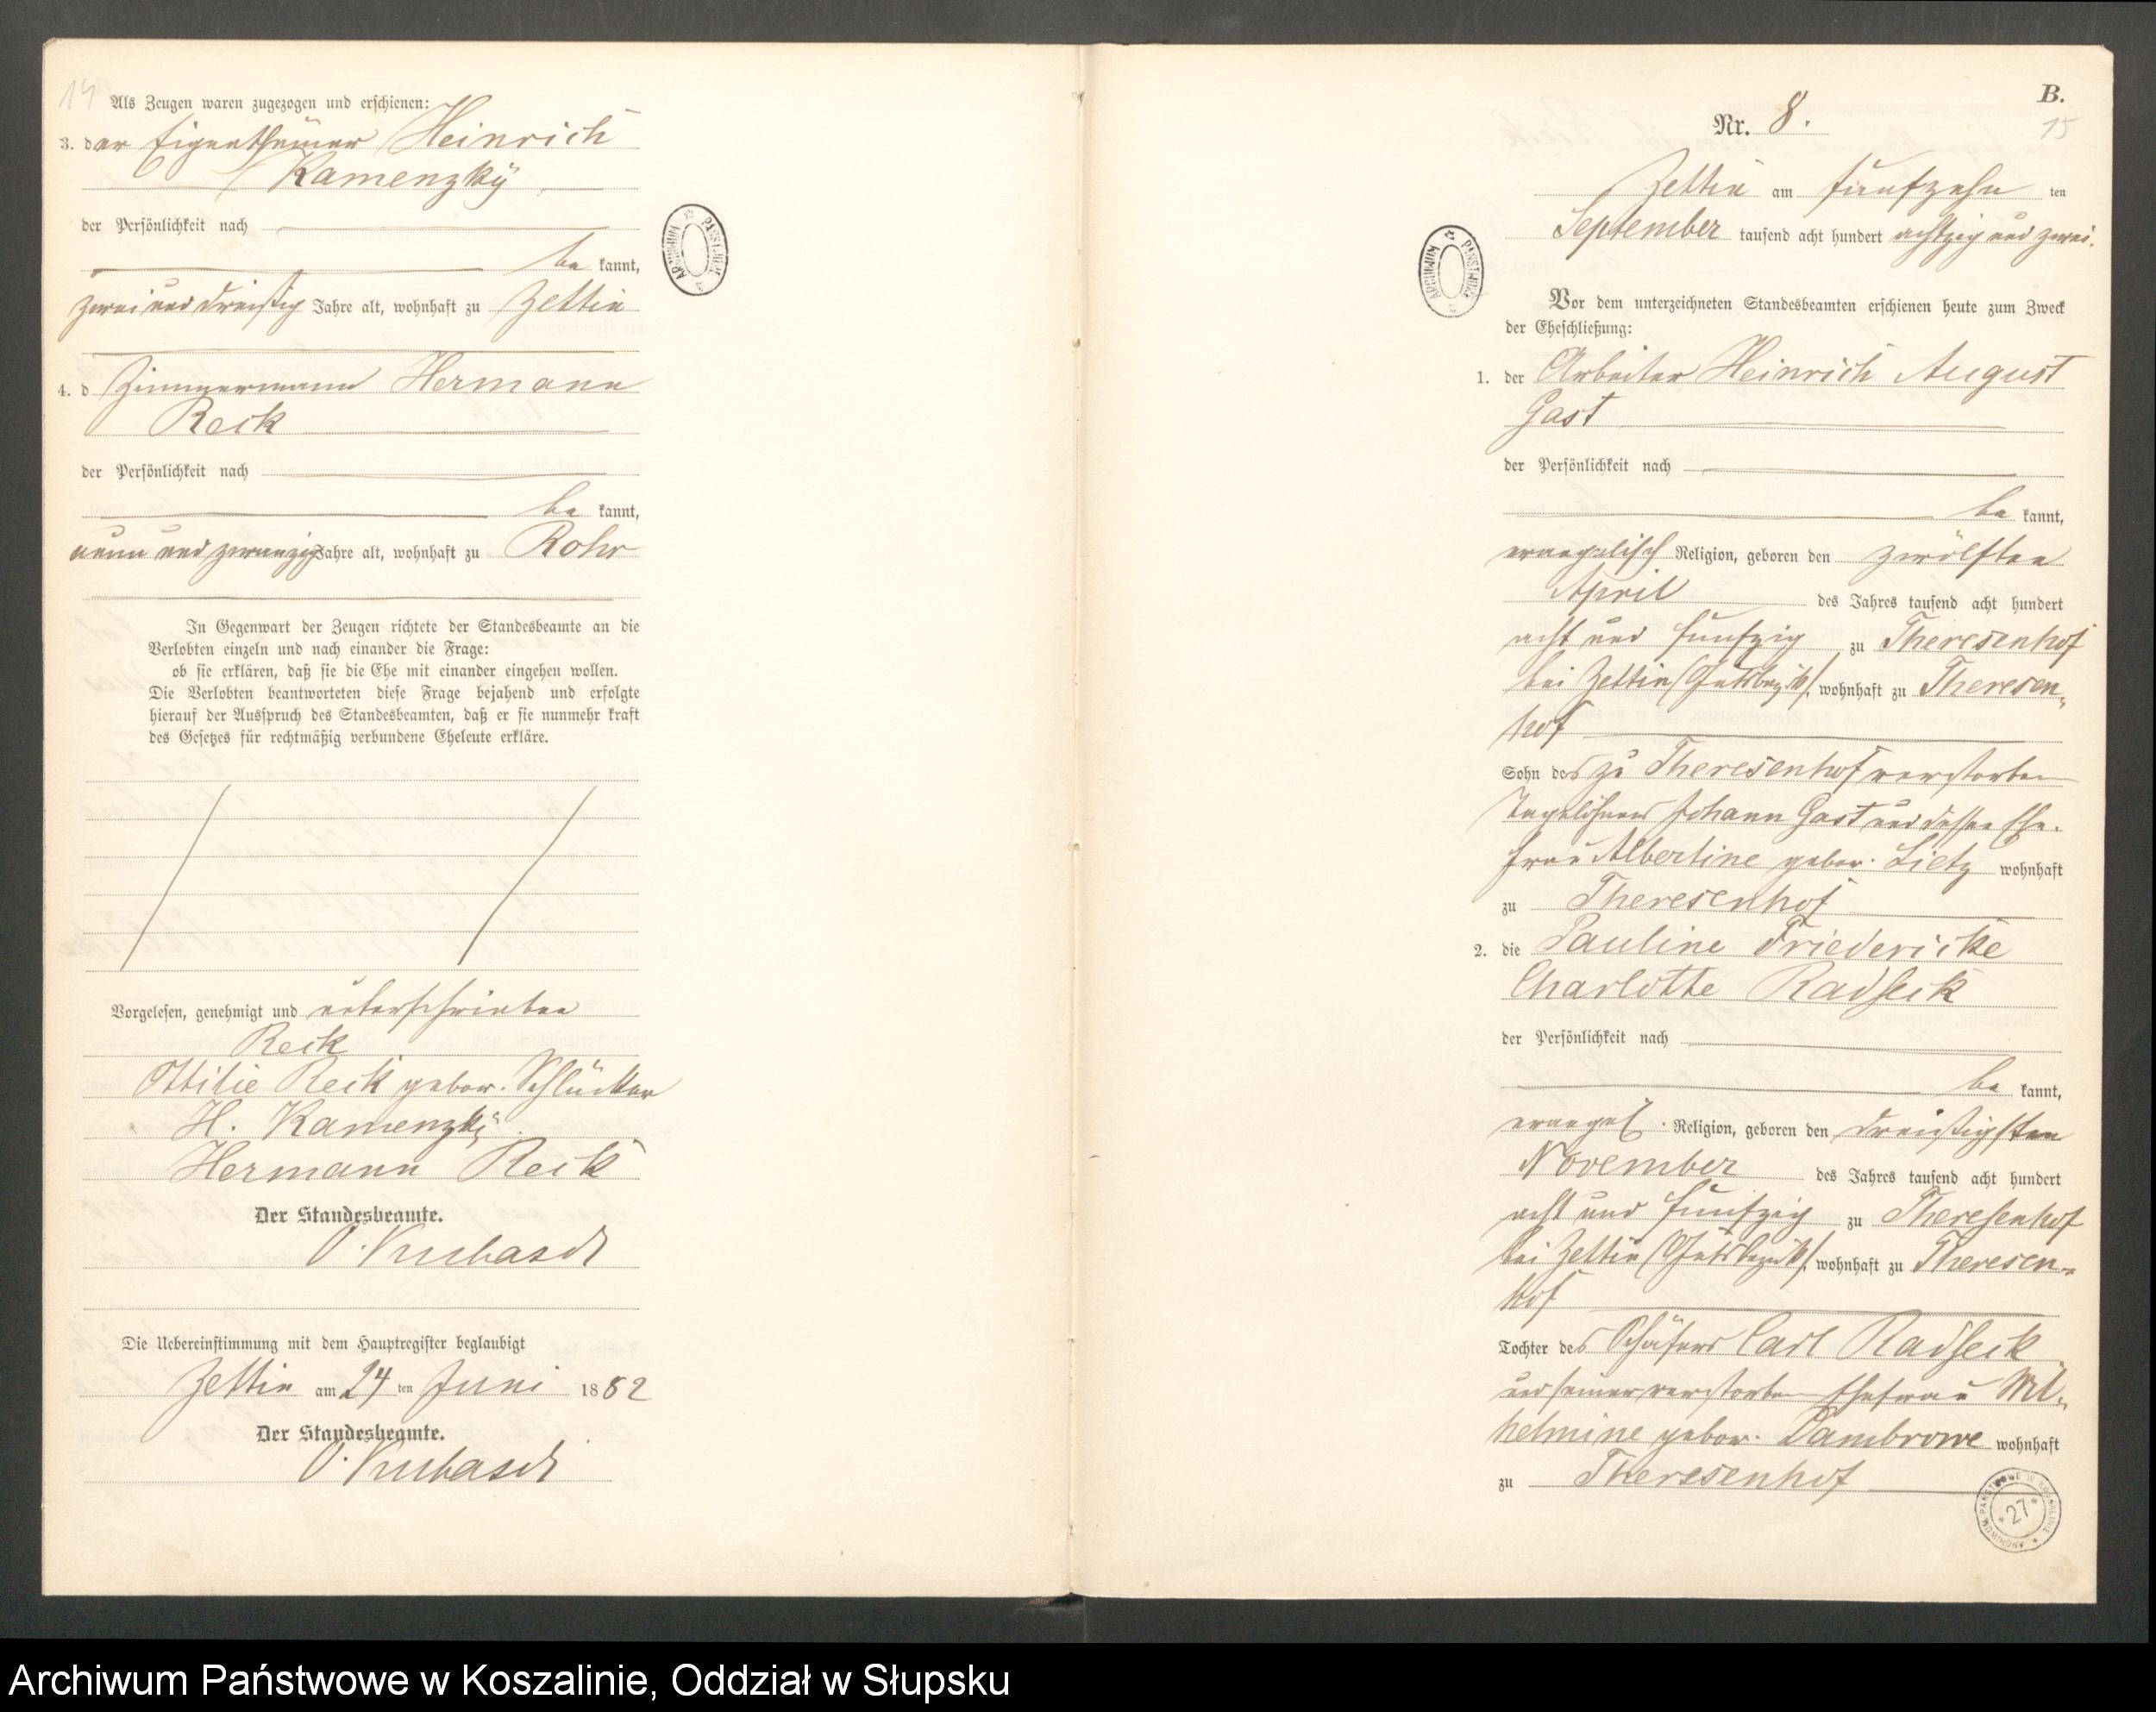 14
Als Zeugen waren zugezogen und erschienen:
3. der Eigenthümer Heinrich
Kamenzky
der Persönlichkeit nach
be kannt,
zwei und dreißig Jahre alt, wohnhaft zu Zettin
4. d Zimmermann Hermann
Reck
der Persönlichkeit nach
be kannt,
neun und zwanzig Jahre alt, wohnhaft zu Rohr
In Gegenwart der Zeugen richtete der Standesbeamte an die
Verlobten einzeln und nach einander die Frage:
ob sie erklären, daß sie die Ehe mit einander eingehen wollen.
Die Verlobten beantworteten diese Frage bejahend und erfolgte
hierauf der Ausspruch des Standesbeamten, daß er sie nunmehr kraft
des Gesetzes für rechtmäßig verbundene Eheleute erkläre.
Vorgelesen, genehmigt und unterschrieben
Reck
Ottilie Reck gebor. Schlücker
H. Kamenzky
Hermann Reck
Der Standesbeamte.
O. Kubasch
Die Uebereinstimmung mit dem Hauptregister beglaubigt
Zettin am 24 ten Juni 1882
Der Standesbeamte.
O. Kubasch
ARCHIWUM PAŃSTWOWE
B.
15
Nr. 8.
Zettin am fünfzehn ten
September tausend acht hundert achtzig und zwei.
ARCHIWUM PAŃSTWOWE
Vor dem unterzeichneten Standesbeamten erschienen heute zum Zweck
der Eheschließung:
1. der Arbeiter Heinrich August
Gast
der Persönlichkeit nach
be kannt,
evangelisch Religion, geboren den zwölften
April des Jahres tausend acht hundert
acht und fünfzig zu Theresenhof
bei Zettin (Gutsbezirk), wohnhaft zu Theresen-
hof
Sohn des zu Theresenhof verstorben
Tagelöhners Johann Gast und dessen Ehe-
frau Albertine gebor. Lietz wohnhaft
zu Theresenhof
2. die Pauline Friedericke
Charlotte Radseck
der Persönlichkeit nach
be kannt,
evangel. Religion, geboren den dreißigsten
November des Jahres tausend acht hundert
acht und fünfzig zu Theresenhof
bei Zettin (Gutsbezirk), wohnhaft zu Theresen-
hof
Tochter des Schäfers Carl Radseck
und seiner verstorben Ehefrau Wil-
helmine gebor. Dambrowe wohnhaft
zu Theresenhof
ARCHIWUM PAŃSTWOWE W KOSZALINIE
*27*
Archiwum Państwowe w Koszalinie, Oddział w Słupsku